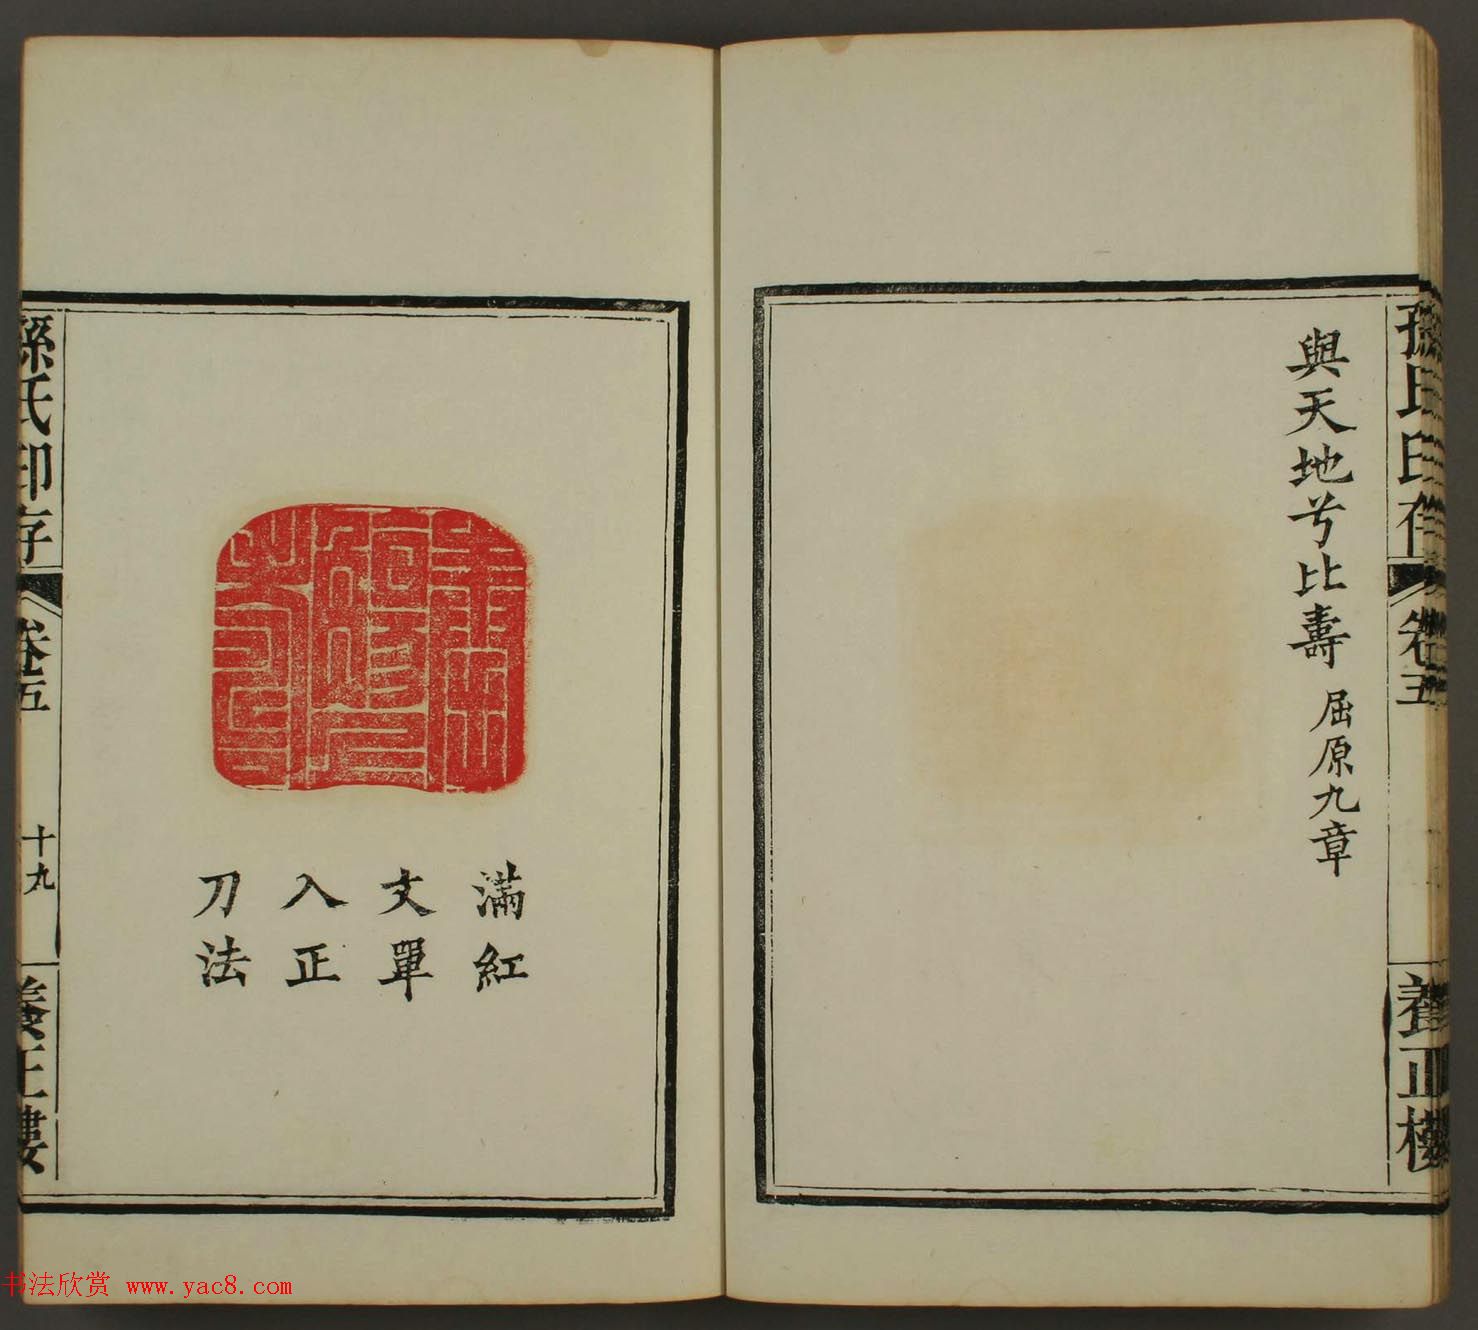 與天地兮比壽 屈原九章
孫氏印存
卷五
養正樓
滿紅
文單
入正
刀法
孫氏印存
卷五
十九
養正樓
书法欣赏 www.yac8.com